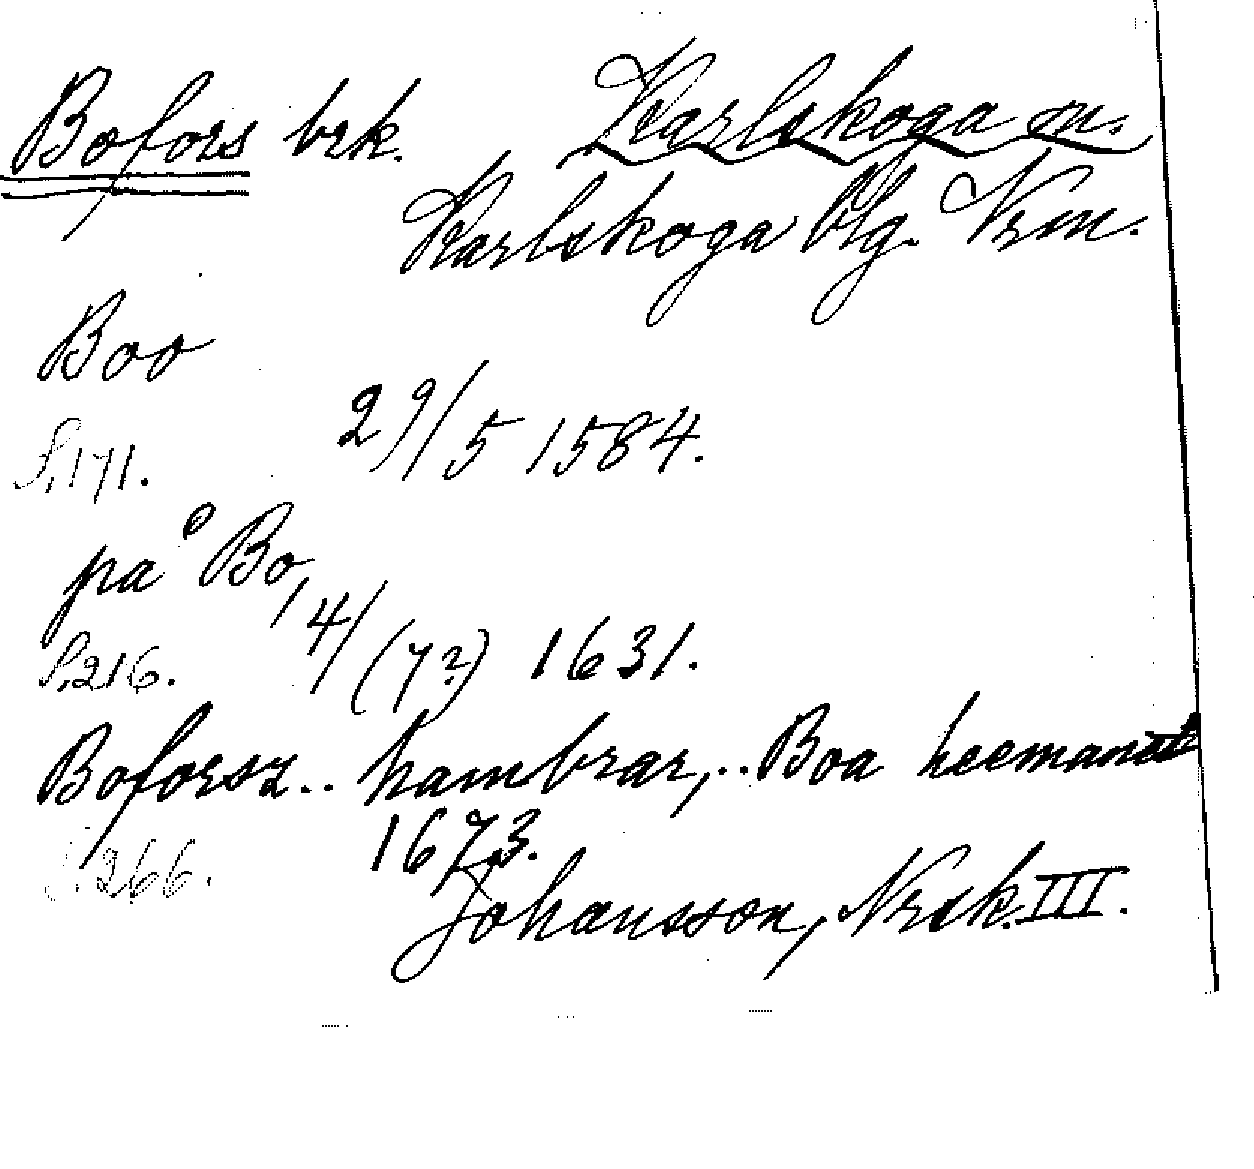 Bofors brk. Karlskoga sn.
Karlskoga blg. Vrm.
Boo
29/5 1584.
S. 171.
på Bo,
14/(7?) 1631.
S. 216.
Boforsz.. hambrar,.. Boa heemanet
1673.
S. 266.
Johansson, Nrsk. III.